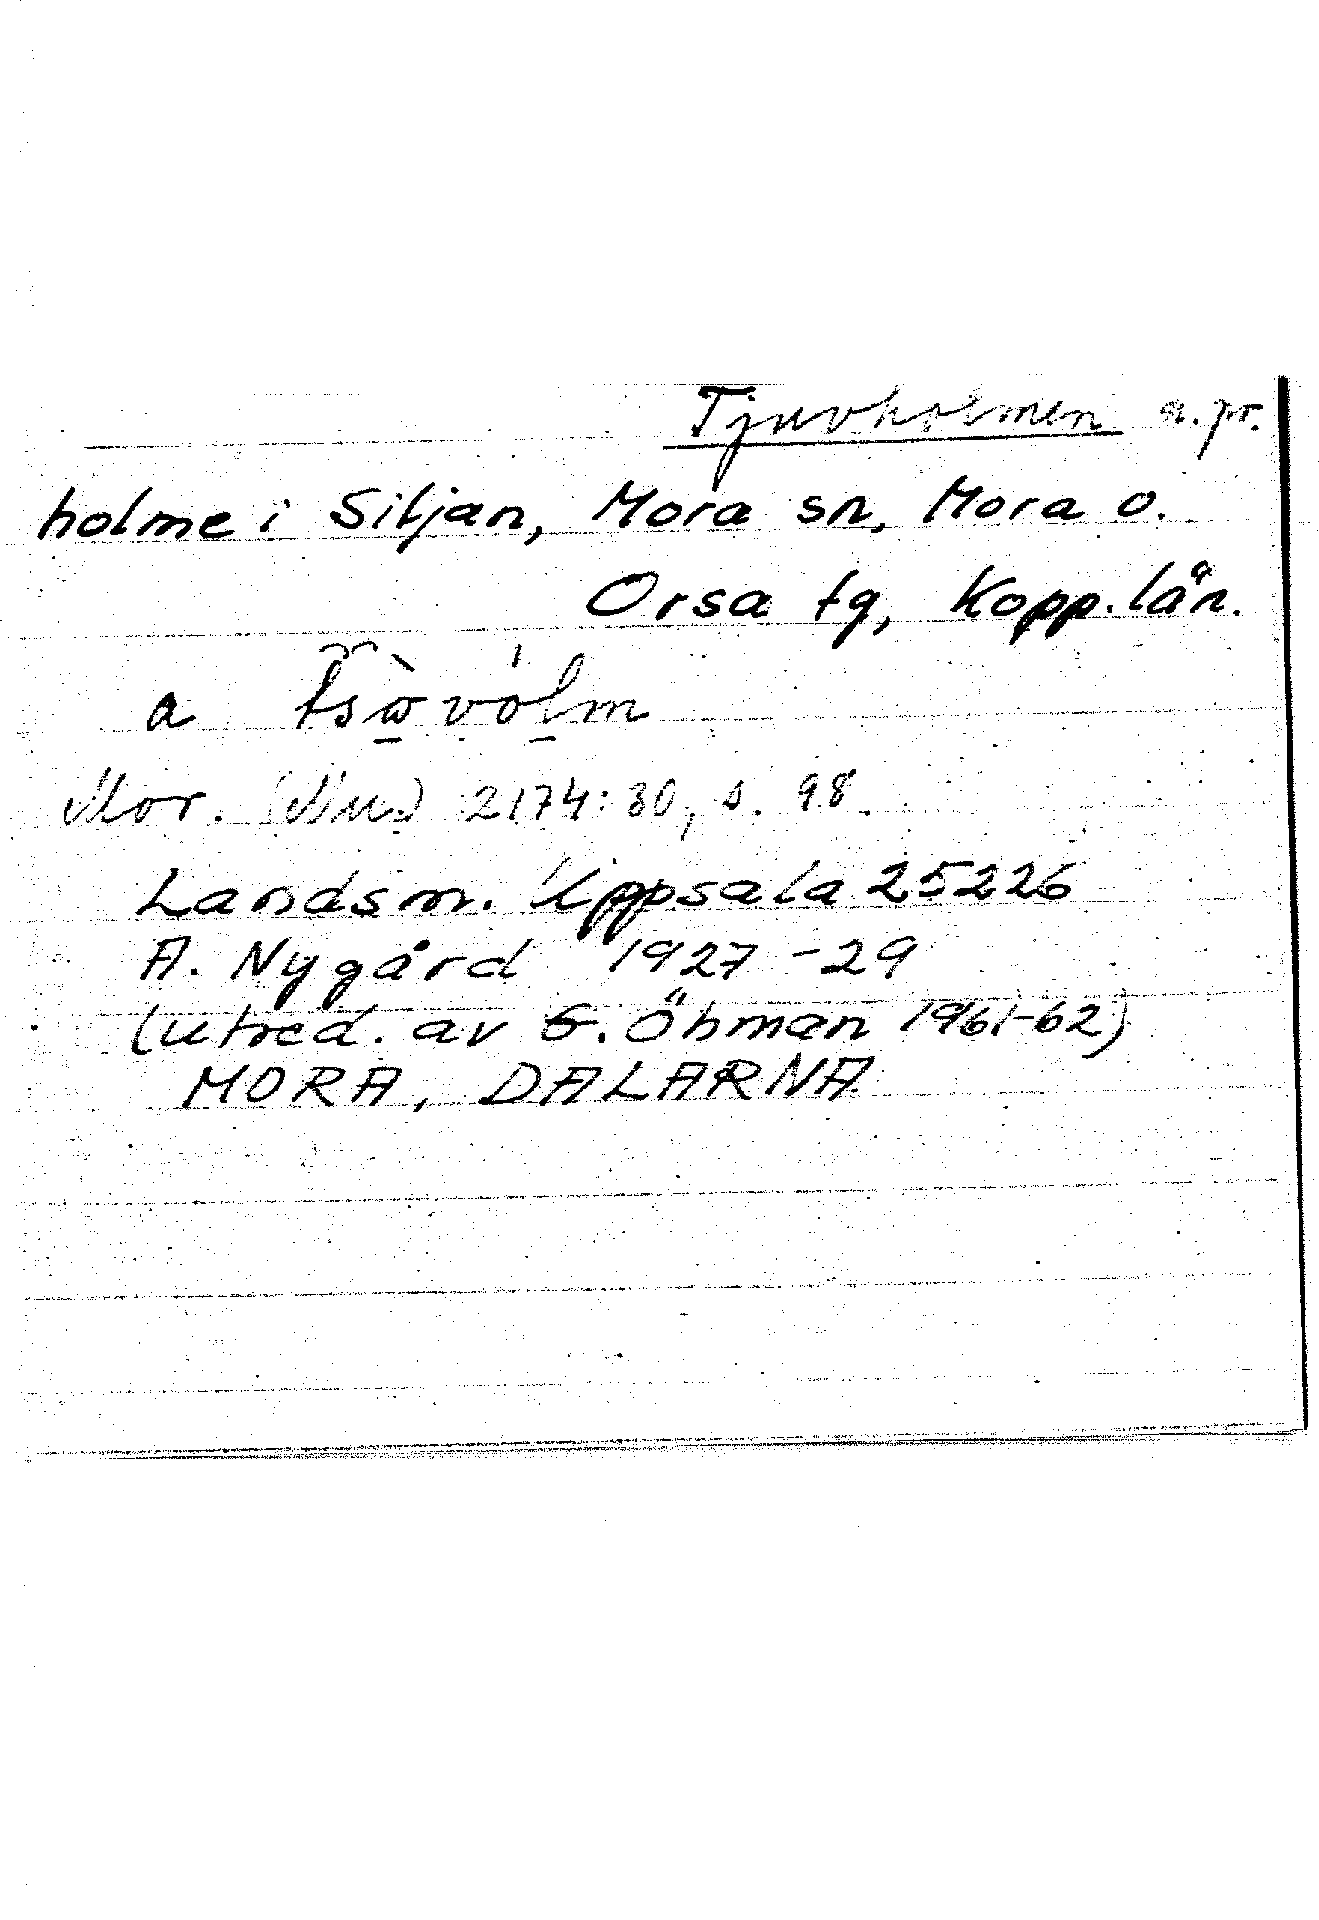 Tjuvholmen n. pr.
holme i Siljan, Mora sn, Mora o.
Orsa tg, Kopp. län.
a
Mor. 2174:30, s. 98.
Landsm. Uppsala 25226
A. Nygård 1927-29
(utred. av G. Öhman 1961-62)
MORA, DALARNA